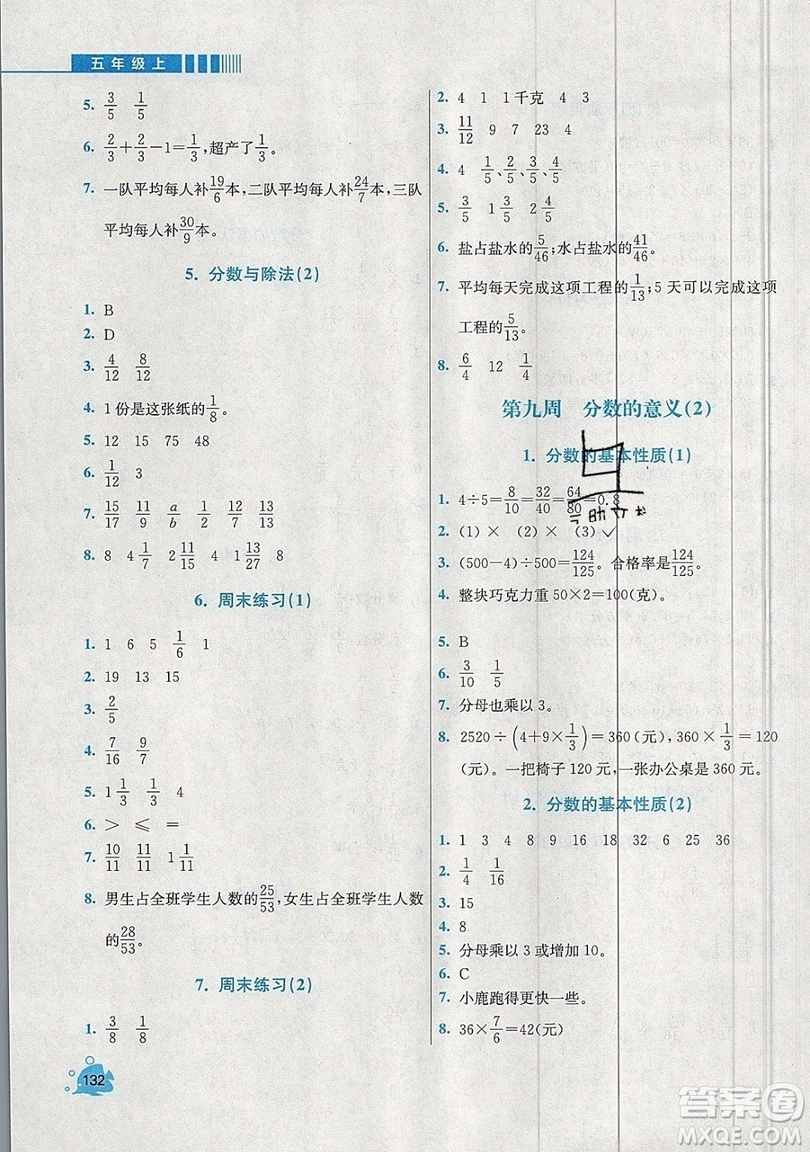 五年级上
5. 3/5 1/5
6. 2/3+2/3-1=1/3,超产了1/3。
7. 一队平均每人补19/6本,二队平均每人补24/7本,三队
平均每人补30/9本。
5. 分数与除法(2)
1. B
2. D
3. 4/12 8/12
4. 1份是这张纸的1/8。
5. 12 15 75 48
6. 1/12 3
7. 15/17 11/9 a/b 1/2 7/12 13/13
8. 8 4 1/7 2 11/15 4 3 2/11
6. 周末练习(1)
1. 1 6 5 1/6 1
2. 19 13 15
3. 2/5
4. 7/16 9/7
5. 1 1/3 1/3 4
6. > ⩽ =
7. 10/11 11/11 1 2/11
8. 男生占全班学生人数的25/53,女生占全班学生人数
的28/53。
7. 周末练习(2)
1. 3/8 1/8
132
2. 4 1 1千克 4 3
3. 11/12 9 7 23 4
4. 4 1/5、2/5、3/5、4/5
5. 3/5 1 3/5 2 4/5
6. 盐占盐水的5/46;水占盐水的41/46。
7. 平均每天完成这项工程的1/13;5天可以完成这项
工程的5/13。
8. 6/4 12 1/4
第九周 分数的意义(2)
1. 分数的基本性质(1)
1. 4÷5=8/10=32/40=64/80=0.8
2. (1) × (2) × (3) ✓
3. (500-4)÷500=124/125。合格率是124/125。
4. 整块巧克力重50×2=100(克)。
5. B
6. 3/10 1/5
7. 分母也乘以3。
8. 2520÷(4+9×1/3)=360(元),360×1/3=120
(元)。一把椅子120元,一张办公桌是360元。
2. 分数的基本性质(2)
1. 1 3 4 8 9 16 32 6 25 36
2. 1/4 1/16
3. 15
4. 8
5. 分母乘以3或增加10。
6. C
7. 小鹿跑得更快一些。
8. 36×7/6=42(元)
答案圈
MXQE.COM